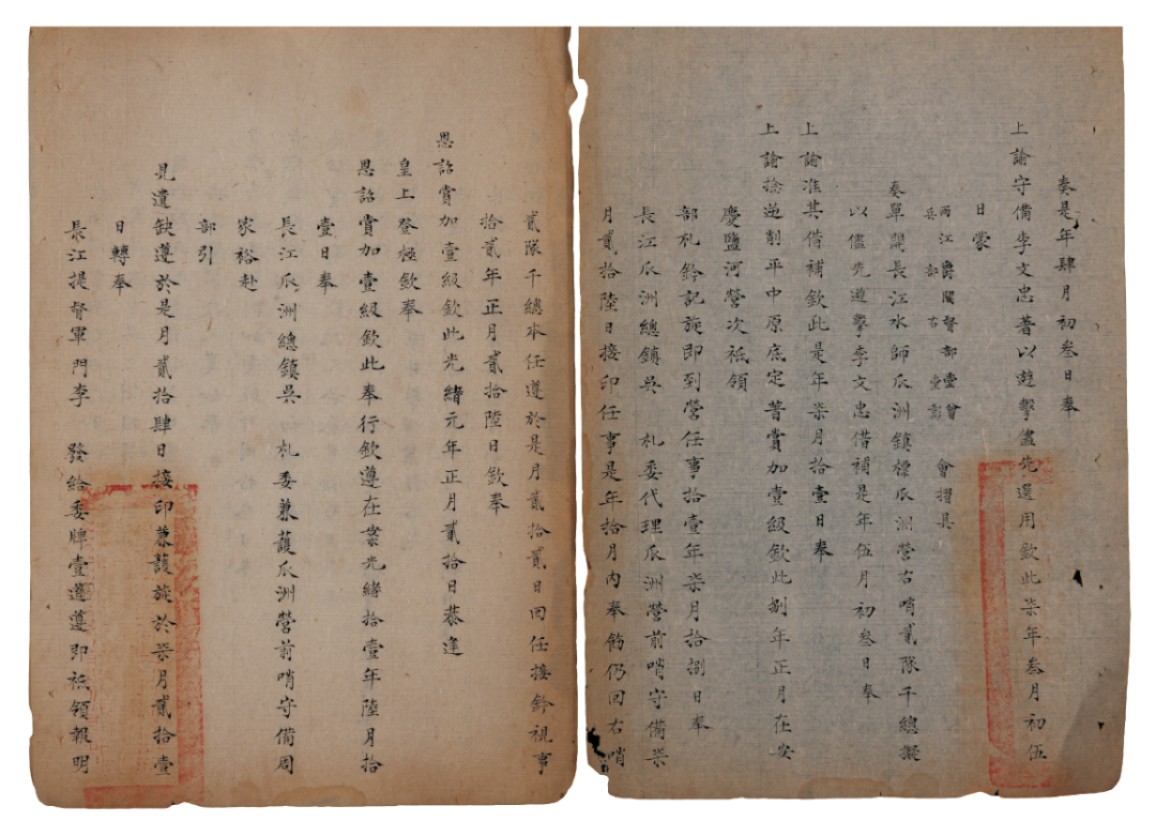 奏是年肆月初叁日奉
上諭守備李文忠著以遊擊儘先選用欽此柒年叁月初伍
日蒙
兩江爵閣督部堂曾
兵部右堂彭
會摺具
奏單開長江水師瓜洲鎮標瓜洲營右哨貳隊千總擬
以儘先遊擊李文忠借補是年伍月初叁日奉
上諭准其借補欽此是年柒月拾壹日奉
上諭捻逆削平中原底定著賞加壹級欽此捌年正月在安
慶鹽河營次祗領
部札鈐記旋即到營任事拾壹年柒月拾捌日奉
長江瓜洲總鎮吳 札委代理瓜洲營前哨守備柒
月貳拾陸日接印任事是年拾月內奉飭仍回右哨
貳隊千總本任遵於是月貳拾貳日回任接鈐視事
拾貳年正月貳拾陸日欽奉
恩詔賞加壹級欽此光緒元年正月貳拾日恭逢
皇上登極欽奉
恩詔賞加壹級欽此奉行欽遵在案光緒拾壹年陸月拾
壹日奉
長江瓜洲總鎮吳 札委兼護瓜洲營前哨守備周
家裕赴
部引
見遺缺遵於是月貳拾肆日接印兼護旋於柒月貳拾壹
日轉奉
長江提督軍門李 發給委牌壹道遵即祗領報明